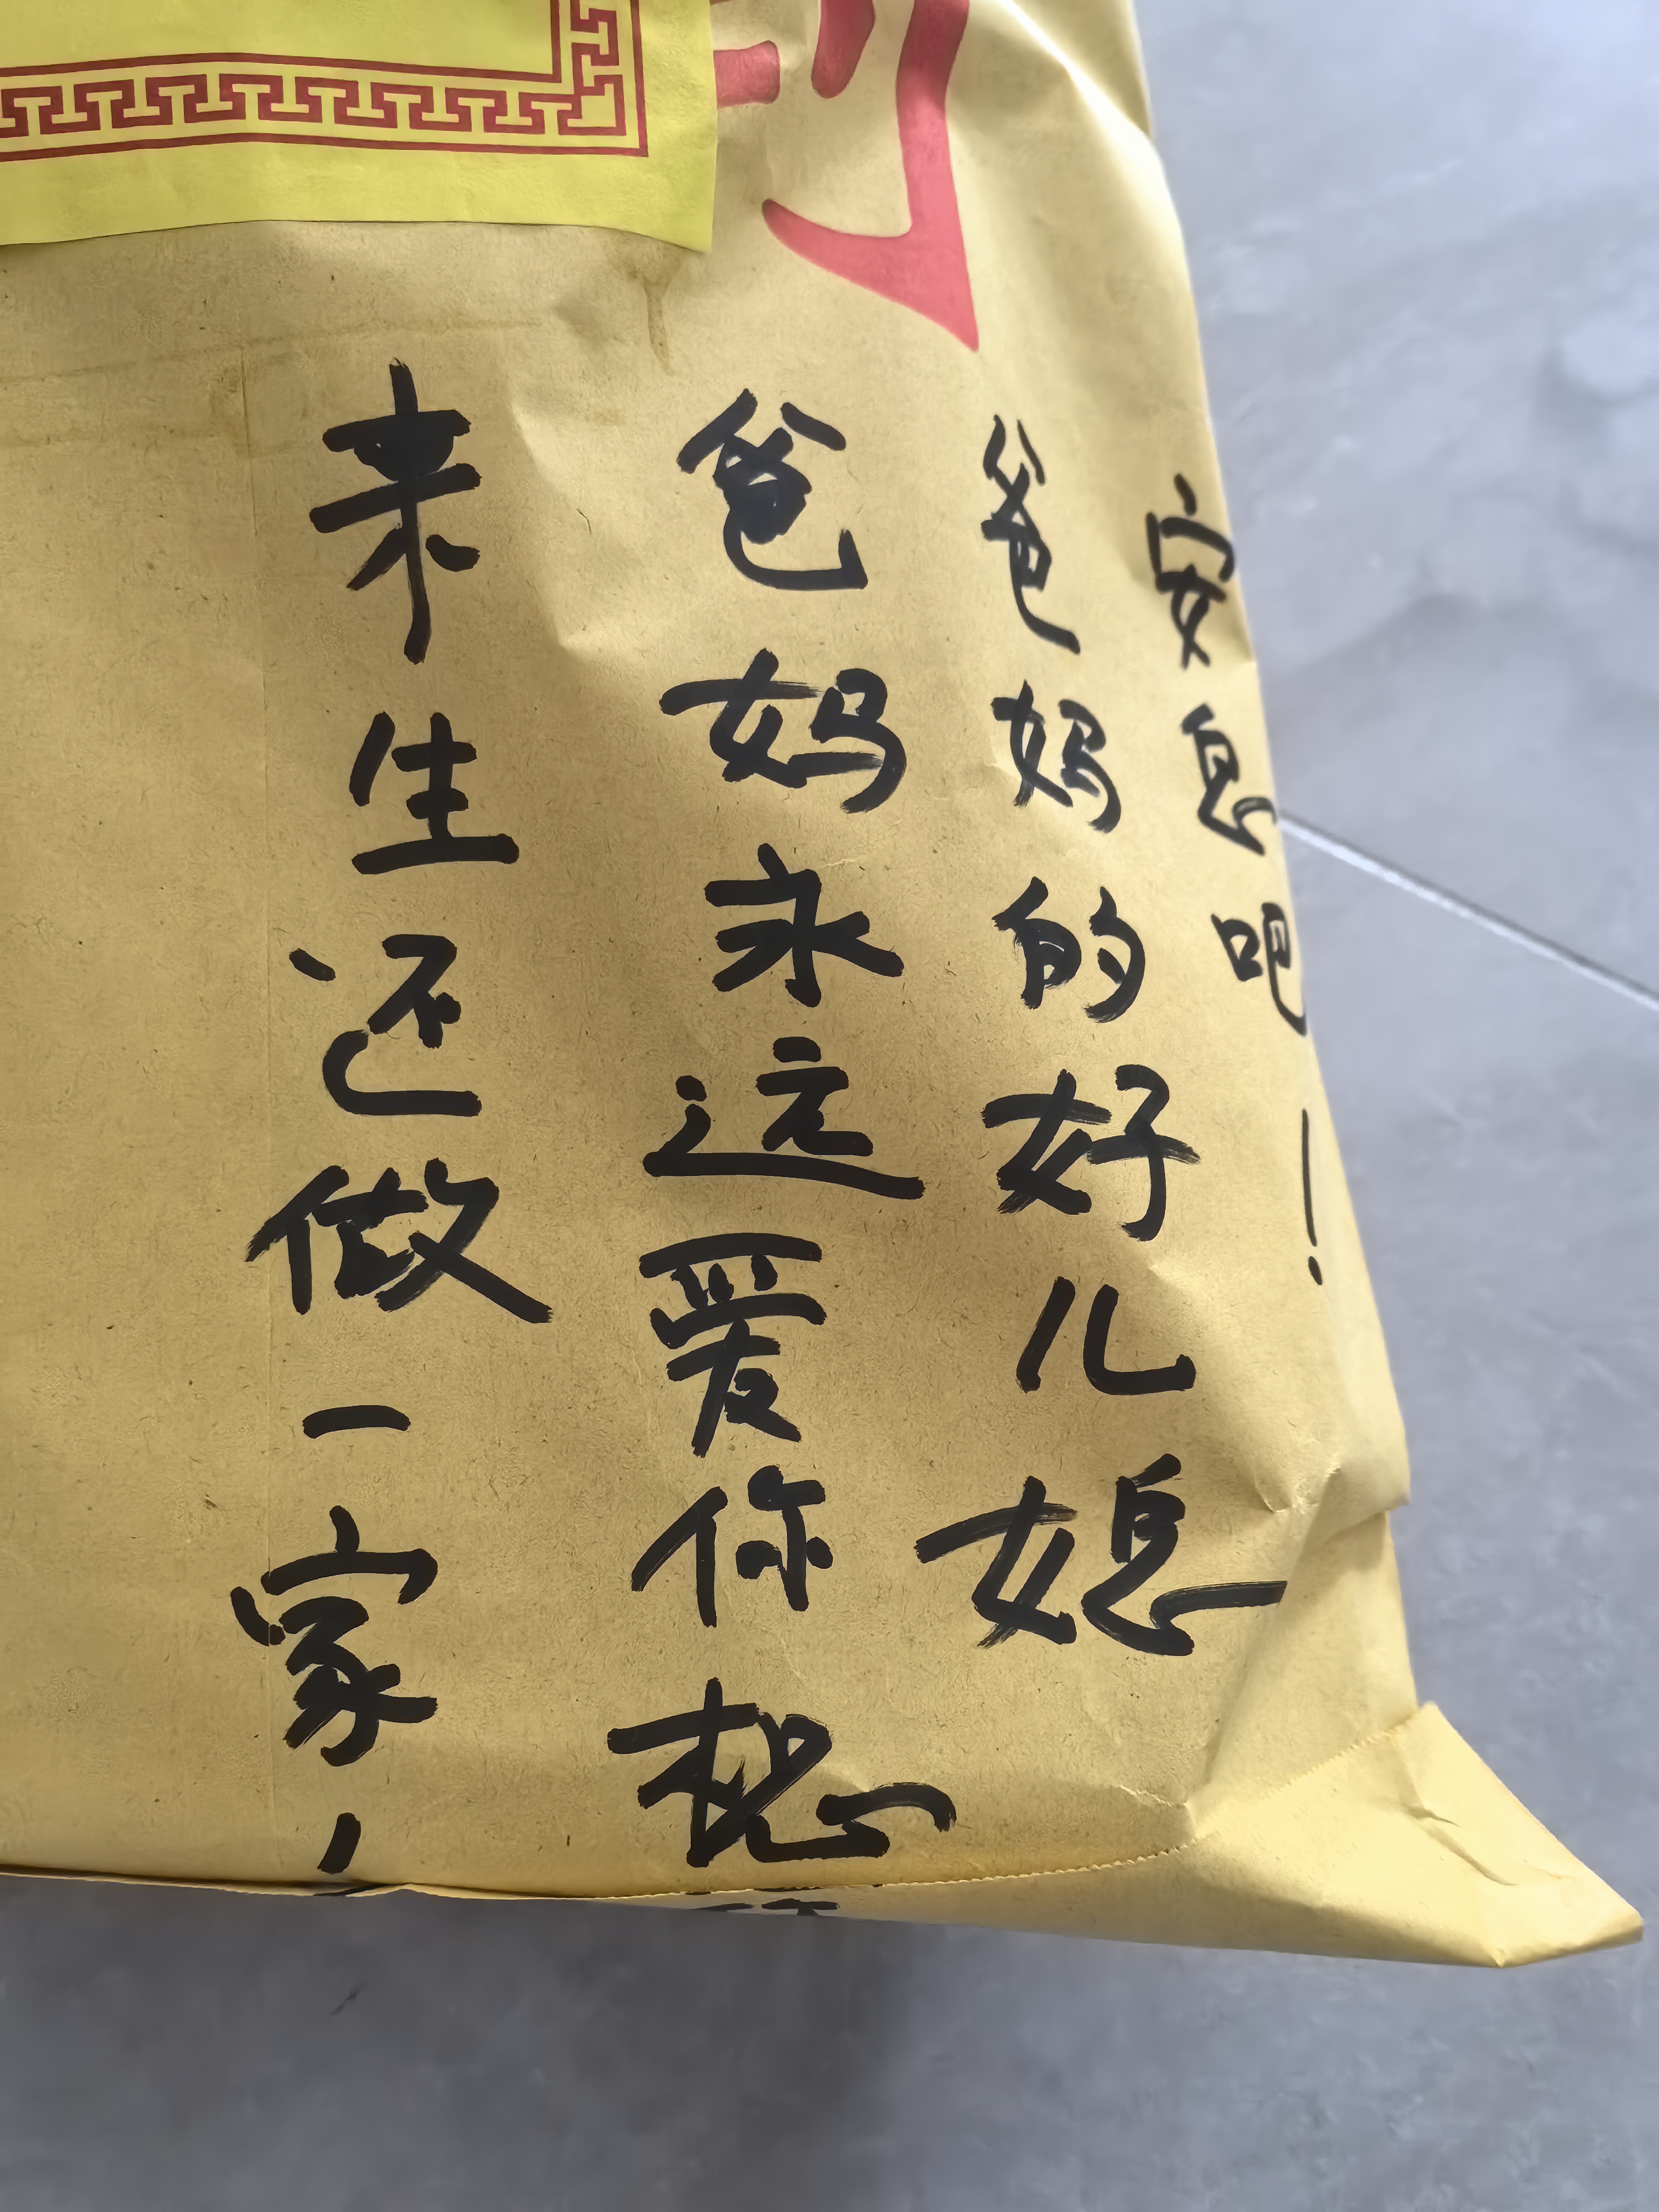 安息吧！
爸妈的好儿媳
爸妈永远爱你想
来生还做一家